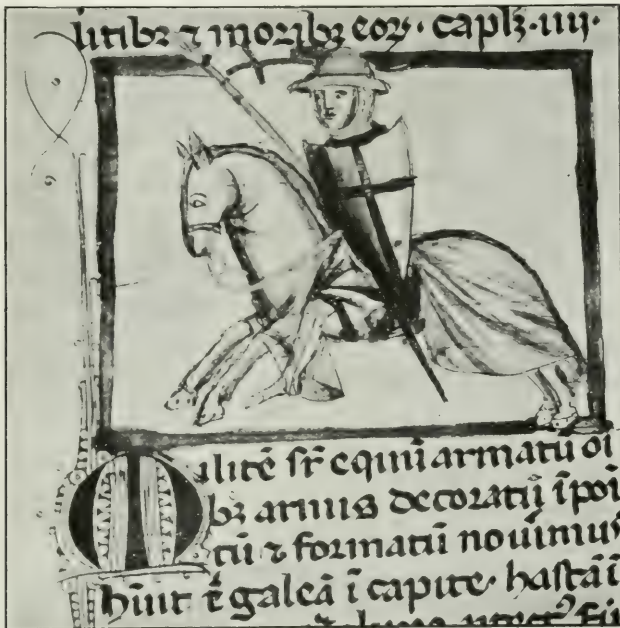 litibꝫ ⁊ moribꝫ eoꝝ · caplꝫ · iiij·
Militē sr̄ equū armatū oī
bꝫ armis decoratū īpoi
tū ⁊ formatū nouimus
hūit galeā ī capite· hastā ī